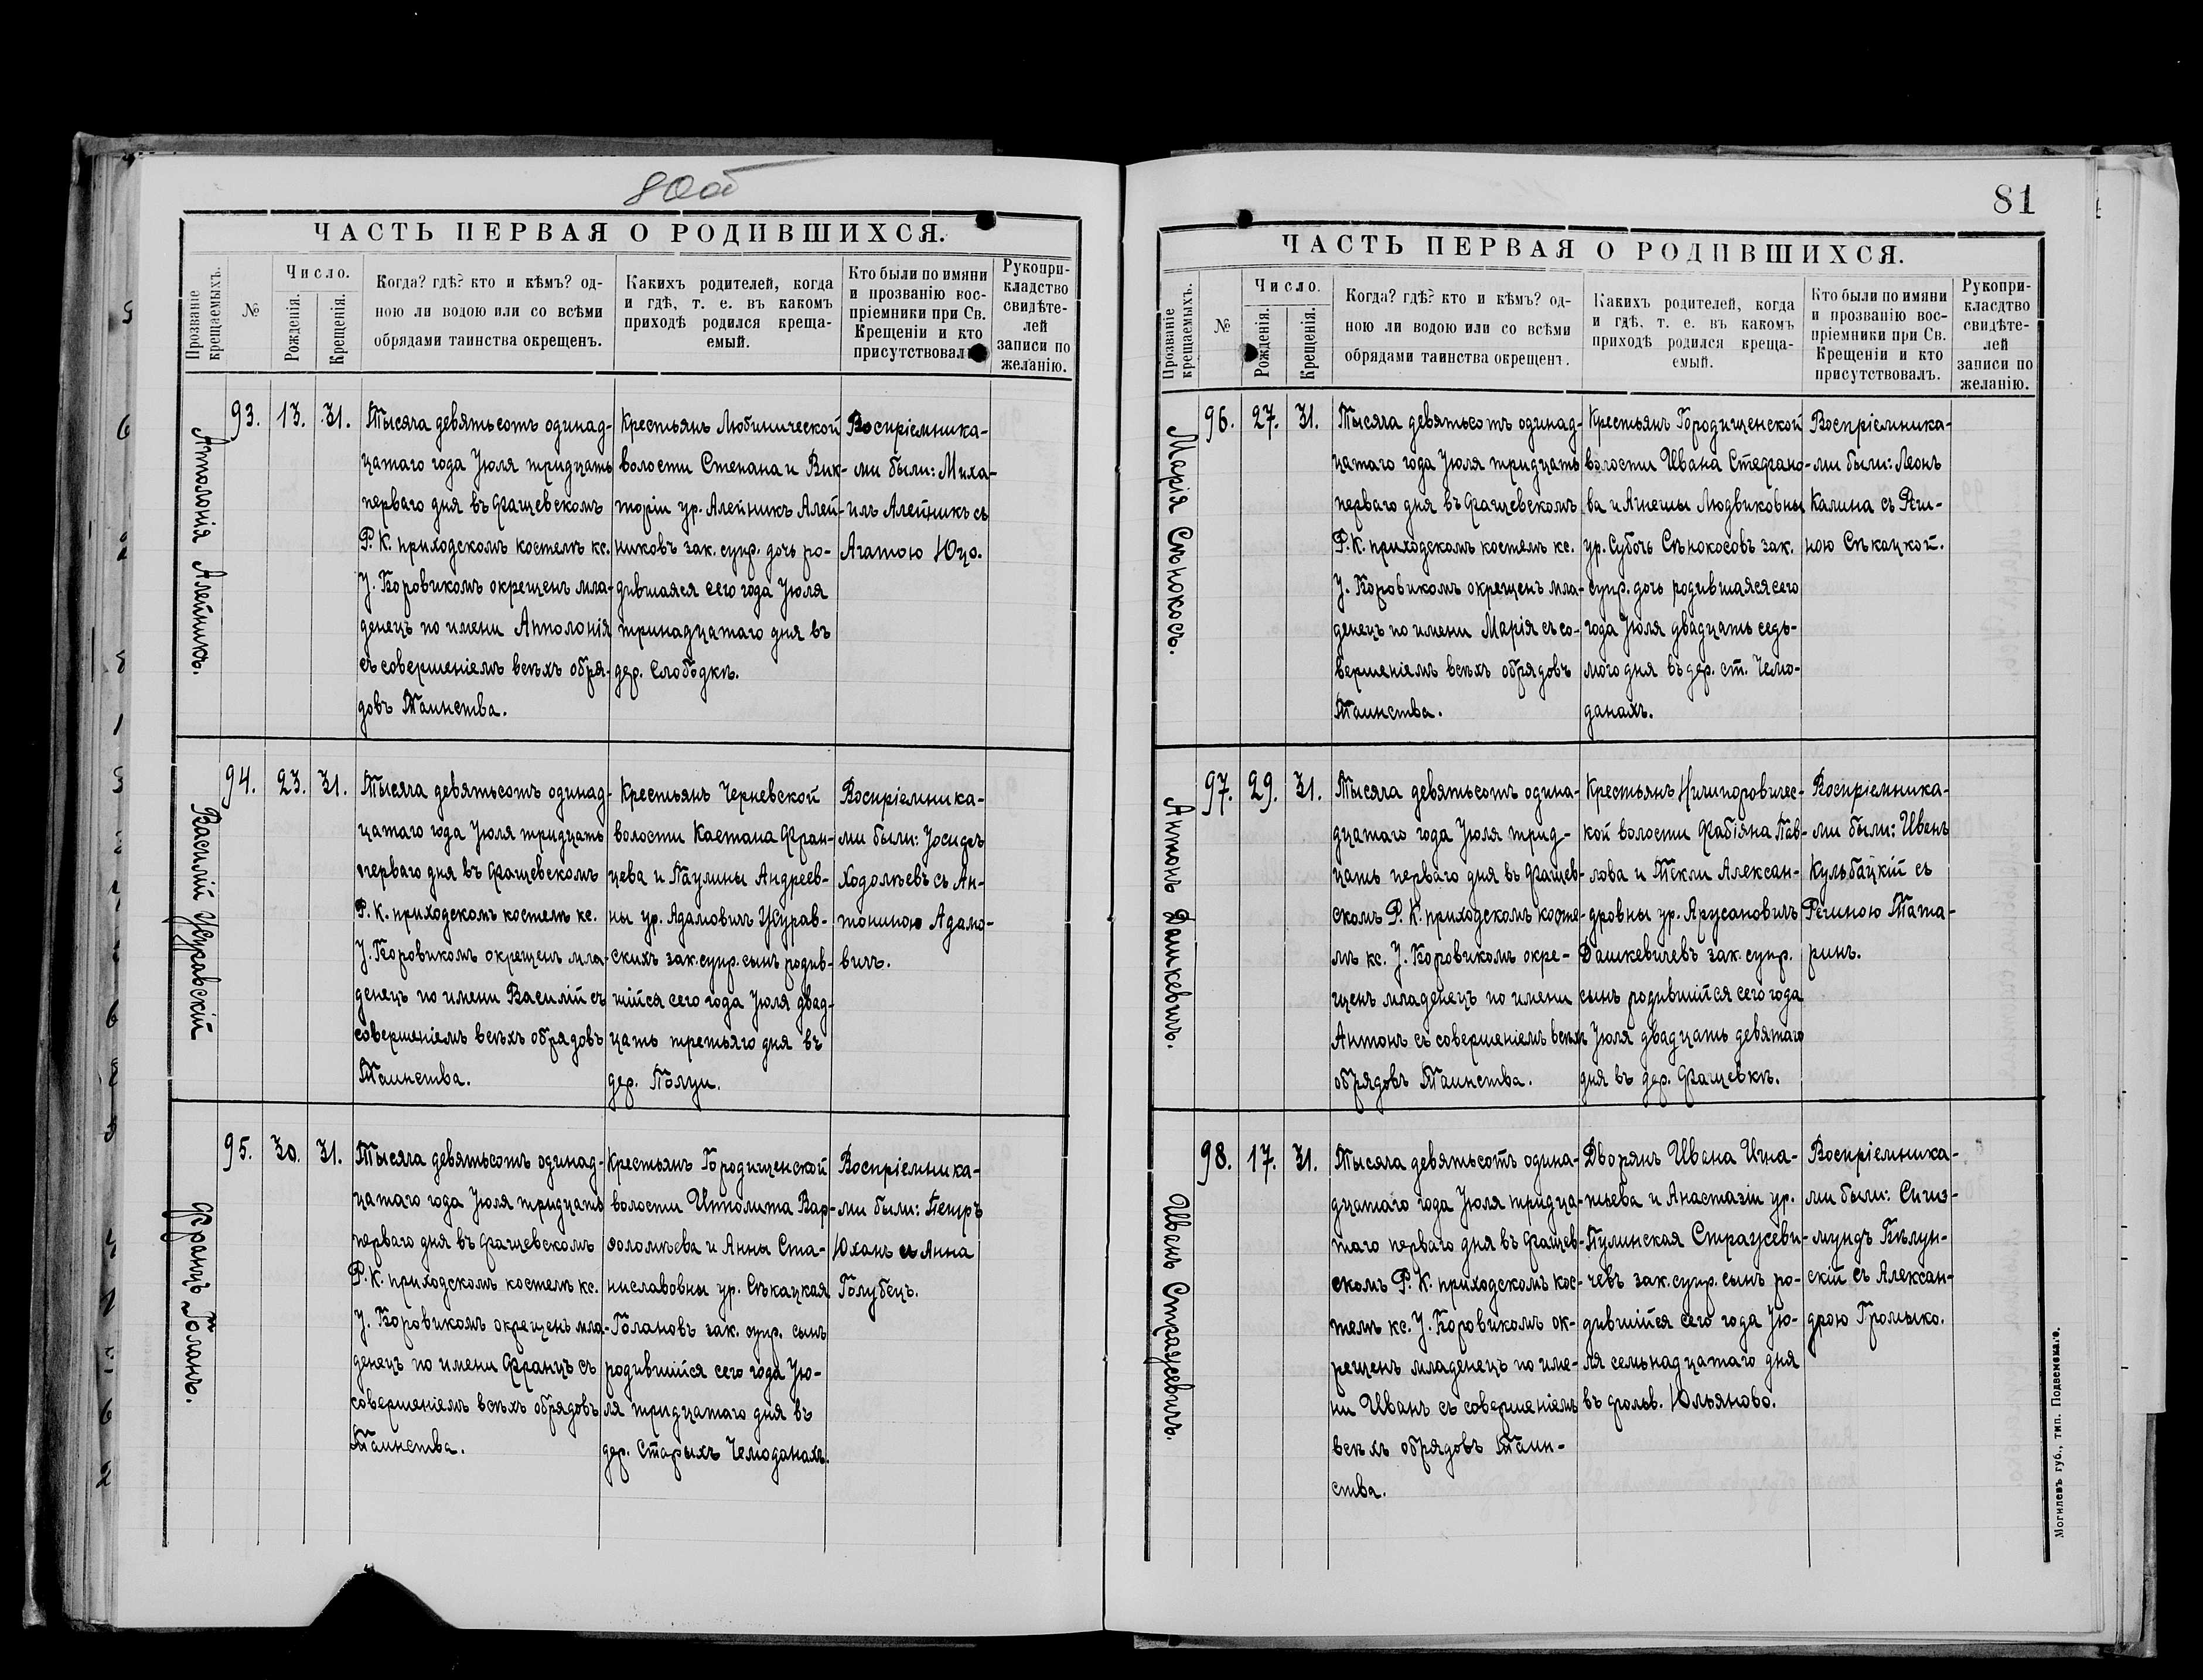 80об
ЧАСТЬ ПЕРВАЯ О РОДИВШИХСЯ.
Прозваніе крещаемыхъ.
№
Число.
Рожденія.
Крещенія.
Когда? гдѣ? кто и кѣмъ? од-
ною ли водою или со всѣми
обрядами таинства окрещенъ.
Какихъ родителей, когда
и гдѣ, т. е. въ какомъ
приходѣ родился креща-
емый.
Кто были по имяни
и прозванію вос-
пріемники при Св.
Крещеніи и кто
присутствовал
Рукопри-
кладство
свидѣте-
лей
записи по
желанію.
Апполонія Алейникъ.
93. 13. 31.
Тысяча девятьсотъ одинад-
цатаго года Іюля тридцать
перваго дня въ Фащевскомъ
Р. К. приходскомъ костелѣ кс.
І. Боровикомъ окрещенъ мла-
денецъ по имени Апполонія
съ совершеніемъ всѣхъ обря-
довъ Таинства.
Крестьянъ Любиничской
волости Степана и Вик-
торіи ур. Алейникъ Алей-
никовъ зак. супр. дочь ро-
дившаяся сего года Іюля
тринадцатаго дня въ
дер. Слободкѣ.
Воспріемника-
ми были: Миха-
илъ Алейникъ съ
Агатою Юцо.
Василій Журавскій
94. 23. 31.
Тысяча девятьсотъ одинад-
цатаго года Іюля тридцать
перваго дня въ Фащевскомъ
Р. К. приходскомъ костелѣ кс.
І. Боровикомъ окрещенъ мла-
денецъ по имени Василій съ
совершеніемъ всѣхъ обрядовъ
Таинства.
Крестьянъ Черневской
волости Каетана Фран-
цева и Паулины Андреев-
ны ур. Адамовичъ Журав-
скихъ зак. супр. сынъ родив-
шійся сего года Іюля двад-
цать третьяго дня въ
дер. Ползи.
Воспріемника-
ми были: Іосифъ
Ходолѣевъ съ Ан-
тониною Адамо-
вичъ.
Францъ Голанъ.
95. 30. 31.
Тысяча девятьсотъ одинад-
цатаго года Іюля тридцать
перваго дня въ Фащевскомъ
Р. К. приходскомъ костелѣ кс.
І. Боровикомъ окрещенъ мла-
денецъ по имени Францъ съ
совершеніемъ всѣхъ обрядовъ
Таинства.
Крестьянъ Городищенской
волости Ипполита Вар-
фоломѣева и Анны Ста-
ниславовны ур. Сѣкацкая
Голановъ зак. супр. сынъ
родившійся сего года Ію-
ля тридцатаго дня въ
дер. Старыхъ Чемоданахъ.
Воспріемника-
ми были: Петръ
Юханъ съ Анна
Голубецъ.
81
ЧАСТЬ ПЕРВАЯ О РОДИВШИХСЯ.
Прозваніе крещаемыхъ.
№
Число.
Рожденія.
Крещенія.
Когда? гдѣ? кто и кѣмъ? од-
ною ли водою или со всѣми
обрядами таинства окрещенъ.
Какихъ родителей, когда
и гдѣ, т. е. въ какомъ
приходѣ родился креща-
емый.
Кто были по имяни
и прозванію вос-
пріемники при Св.
Крещеніи и кто
присутствовалъ.
Рукопри-
класдтво
свидѣте-
лей
записи по
желанію.
Марія Сѣнокосъ.
96. 27. 31.
Тысяча девятьсотъ одинад-
цатаго года Іюля тридцать
перваго дня въ Фащевскомъ
Р. К. приходскомъ костелѣ кс.
І. Боровикомъ окрещенъ мла-
денецъ по имени Марія съ со-
вершеніемъ всѣхъ обрядовъ
Таинства.
Крестьянъ Городищенской
волости Ивана Стефано-
ва и Агнешы Людвиковны
ур. Суботь Сѣнокосовъ зак.
супр. дочь родившаяся сего
года Іюля двадцать седь-
мого дня въ дер. ст. Чемо-
данахъ.
Воспріемника-
ми были: Леонъ
Калина съ Реги-
ною Сѣкацкой.
Антонъ Дашкевичъ.
97. 29. 31.
Тысяча девятьсотъ одина-
дцатаго года Іюля трид-
цать перваго дня въ Фащев-
скомъ Р. К. приходскомъ косте-
лѣ кс. І. Боровикомъ окре-
щенъ младенецъ по имени
Антонъ съ совершеніемъ всѣхъ
обрядовъ Таинства.
Крестьянъ Ничипоровичес-
кой волости Фабіяна Пав-
лова и Теклы Алексан-
дровны ур. Арусановичъ
Дашкевичевъ зак. супр.
сынъ родившійся сего года
Іюля двадцать девятаго
дня въ дер. Фащевкѣ.
Воспріемника-
ми были: Иванъ
Кульбацкій съ
Региною Тата-
ринъ.
Иванъ Стражевичъ.
98. 17. 31.
Тысяча девятьсотъ одина-
дцатаго года Іюля тридца-
таго перваго дня въ Фащев-
скомъ Р. К. приходскомъ кос-
телѣ кс. І. Боровикомъ ок-
рещенъ младенецъ по име-
ни Иванъ съ совершеніемъ
всѣхъ обрядовъ Таин-
ства.
Дворянъ Ивана Игна-
тьева и Анастазіи ур.
Тулинская Стражеви-
чевъ зак. супр. сынъ ро-
дившійся сего года Ію-
ля семьнадцатаго дня
въ фольв. Юльяново.
Воспріемника-
ми были: Сигиз-
мундъ Бѣлун-
скій съ Алексан-
дрою Громыко.
Могилевъ губ., тип. Подвемскаго.